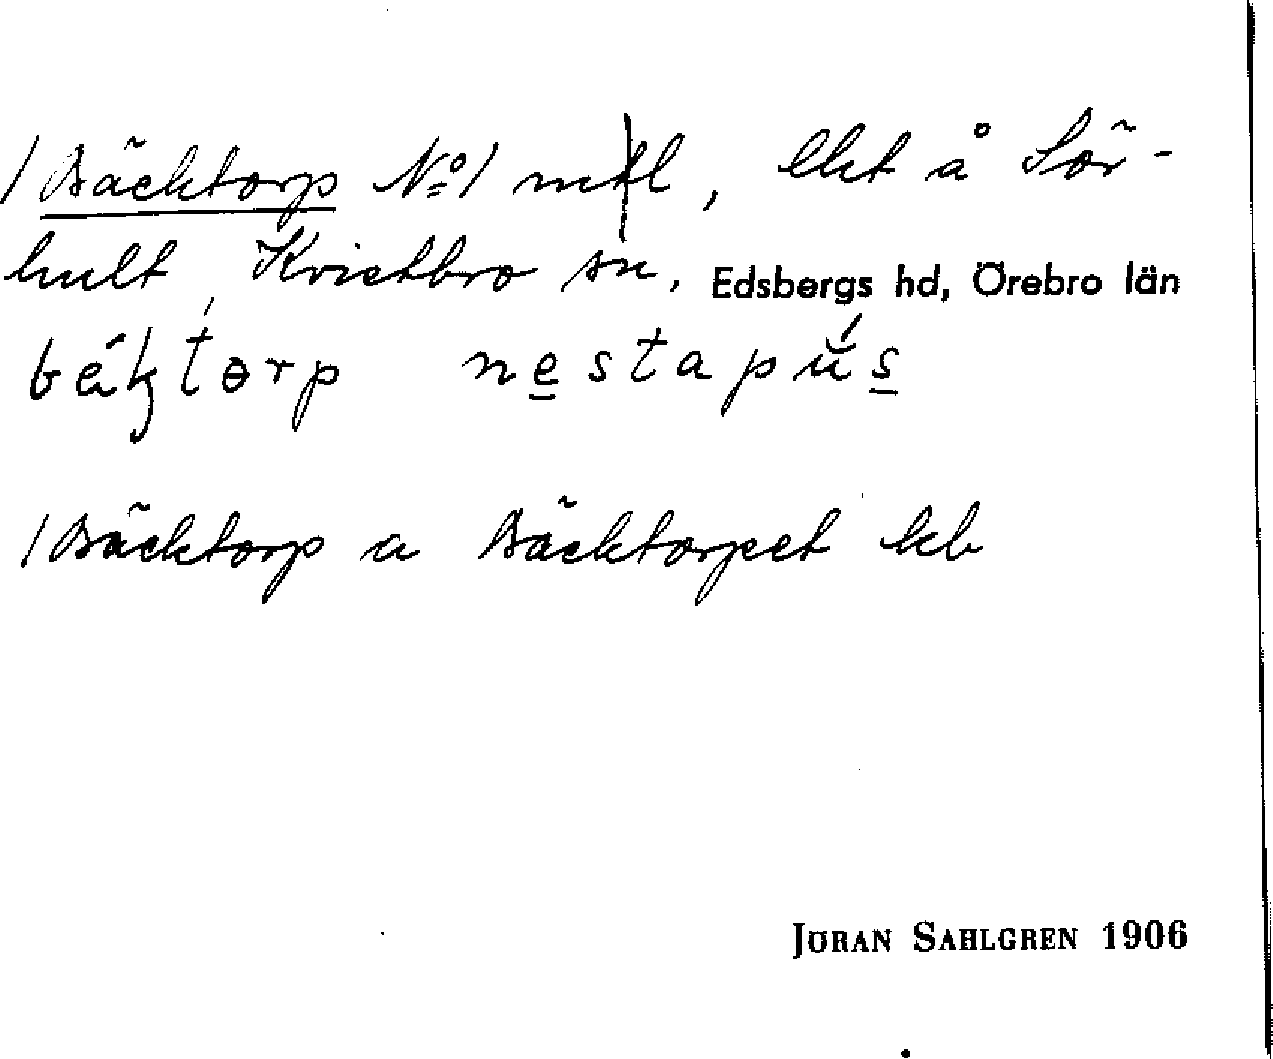 /Bäcktorp No 1 mtl, Ekt å Sör-
hult, Kvistbro sn, Edsbergs hd, Örebro län
nestapús
/Bäcktorp a Bäcktorpet kb
JÖRAN SAHLGREN 1906